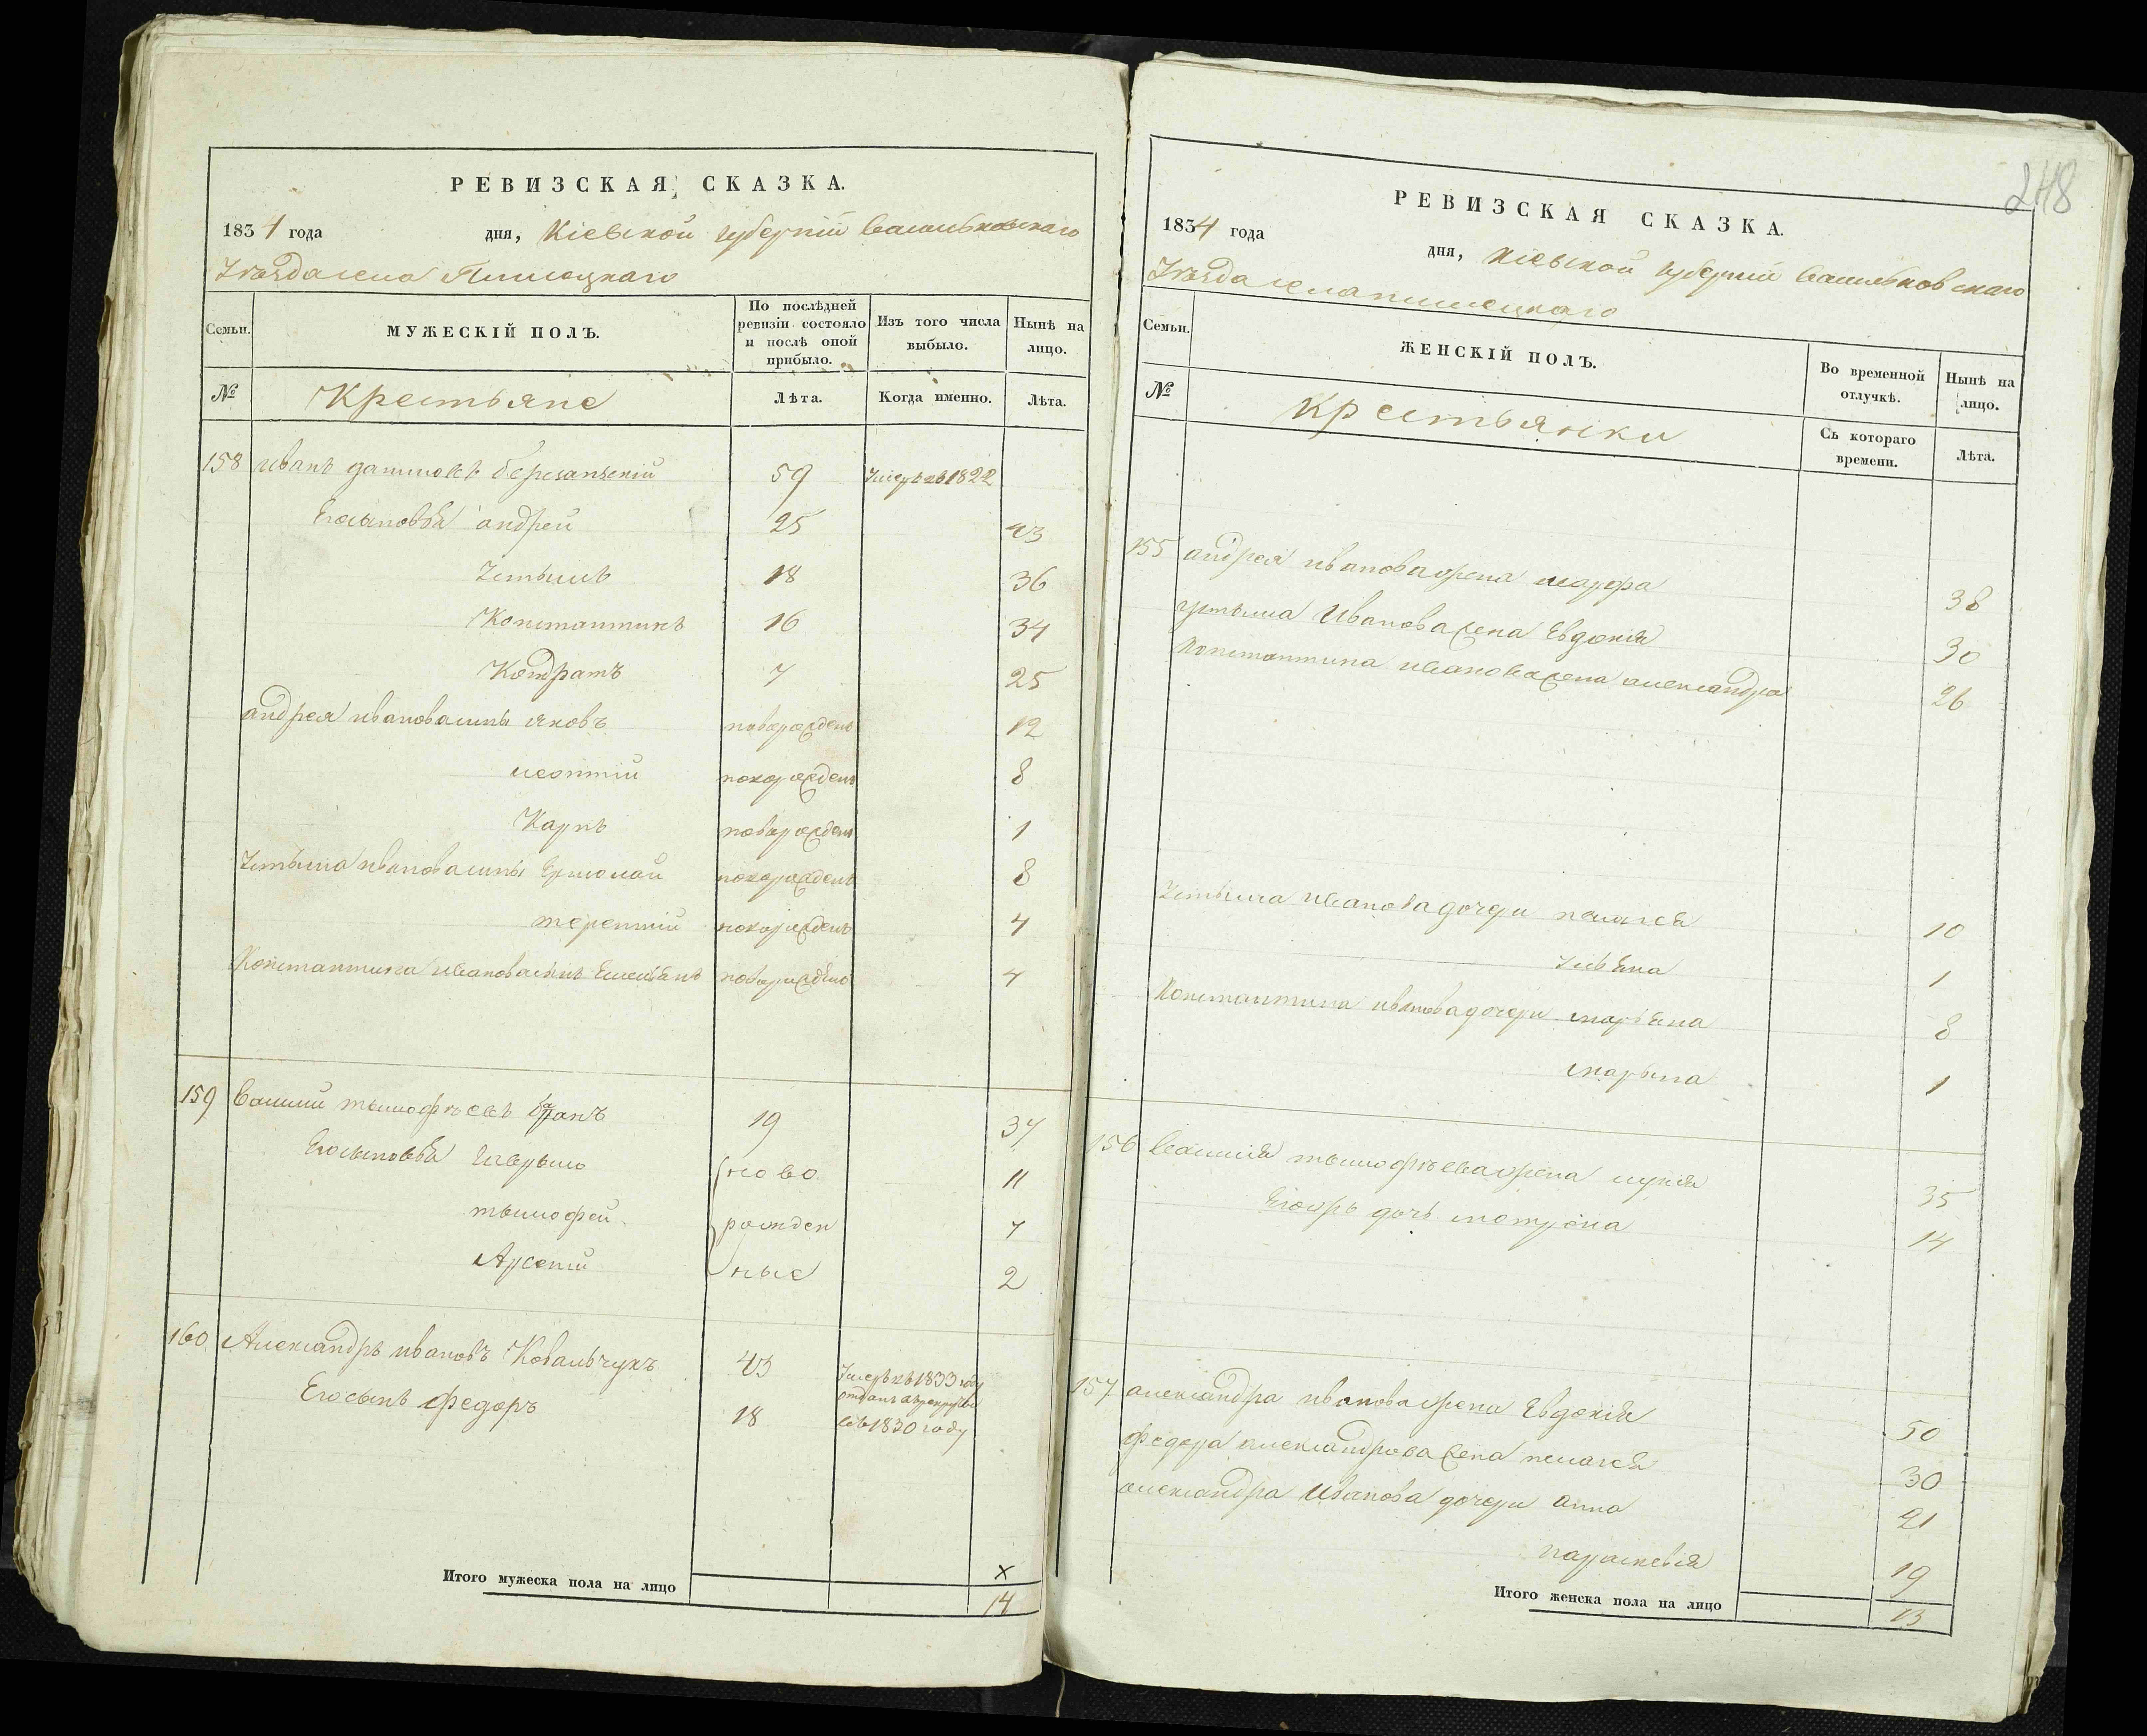 РЕВИЗСКАЯ СКАЗКА.
1834 года дня, Кіевской губерніи Васильковскаго
Уѣзда села
Семьи.
МУЖЕСКІЙ ПОЛЪ.
По послѣдней ревизіи состояло и послѣ оной прибыло.
Изъ того числа выбыло.
Нынѣ на лицо.
№ Крестьяне Лѣта. Когда именно. Лѣта.
158 иванъ Березанскій 59 Умеръ въ 1822
Егосыновья андрей 25 43
Устымъ 18 36
Константинъ 16 34
Кондратъ 7 25
андрея иванова сыны яковъ новорожденъ 12
леонтій новорожденъ 8
Карпъ новорожденъ 1
Устыма иванова сыны Ермолай новорожденъ 8
терентій новорожденъ 4
Константина иванова сынъ Емельянъ новорожденъ 4
159 Василій тымофѣевъ 19 37
Егосыновья Гаврыло ново 11
тымофей рожден 7
Арсеній ные 2
160 Александръ ивановъ Ковальчукъ 43 Умеръ въ 1833 году
Егосынъ федоръ 18 отданъ въ рекруты въ 1830 году
Итого мужеска пола на лицо 14
248
РЕВИЗСКАЯ СКАЗКА.
1834 года дня, Кіевской губерніи Васильковскаго
Уѣзда села
Семьи.
ЖЕНСКІЙ ПОЛЪ.
Во временной отлучкѣ.
Нынѣ на лицо.
№ Крестьянки Съ котораго времени. Лѣта.
155 андрея иванова жена марфа 38
устыма Иванова жена Евдокія 30
Константина иванова жена александра 26
Устыма иванова дочери пелагея 10
Ульяна 1
Константина иванова дочери марьяна 8
марына 1
156 Василія тымофѣева жена лукія 35
Егожъ дочь мотрона 14
157 александра иванова жена Евдокія 50
федора александрова жена пелагея 30
александра Иванова дочери анна 21
параскевія 19
Итого женска пола на лицо 13